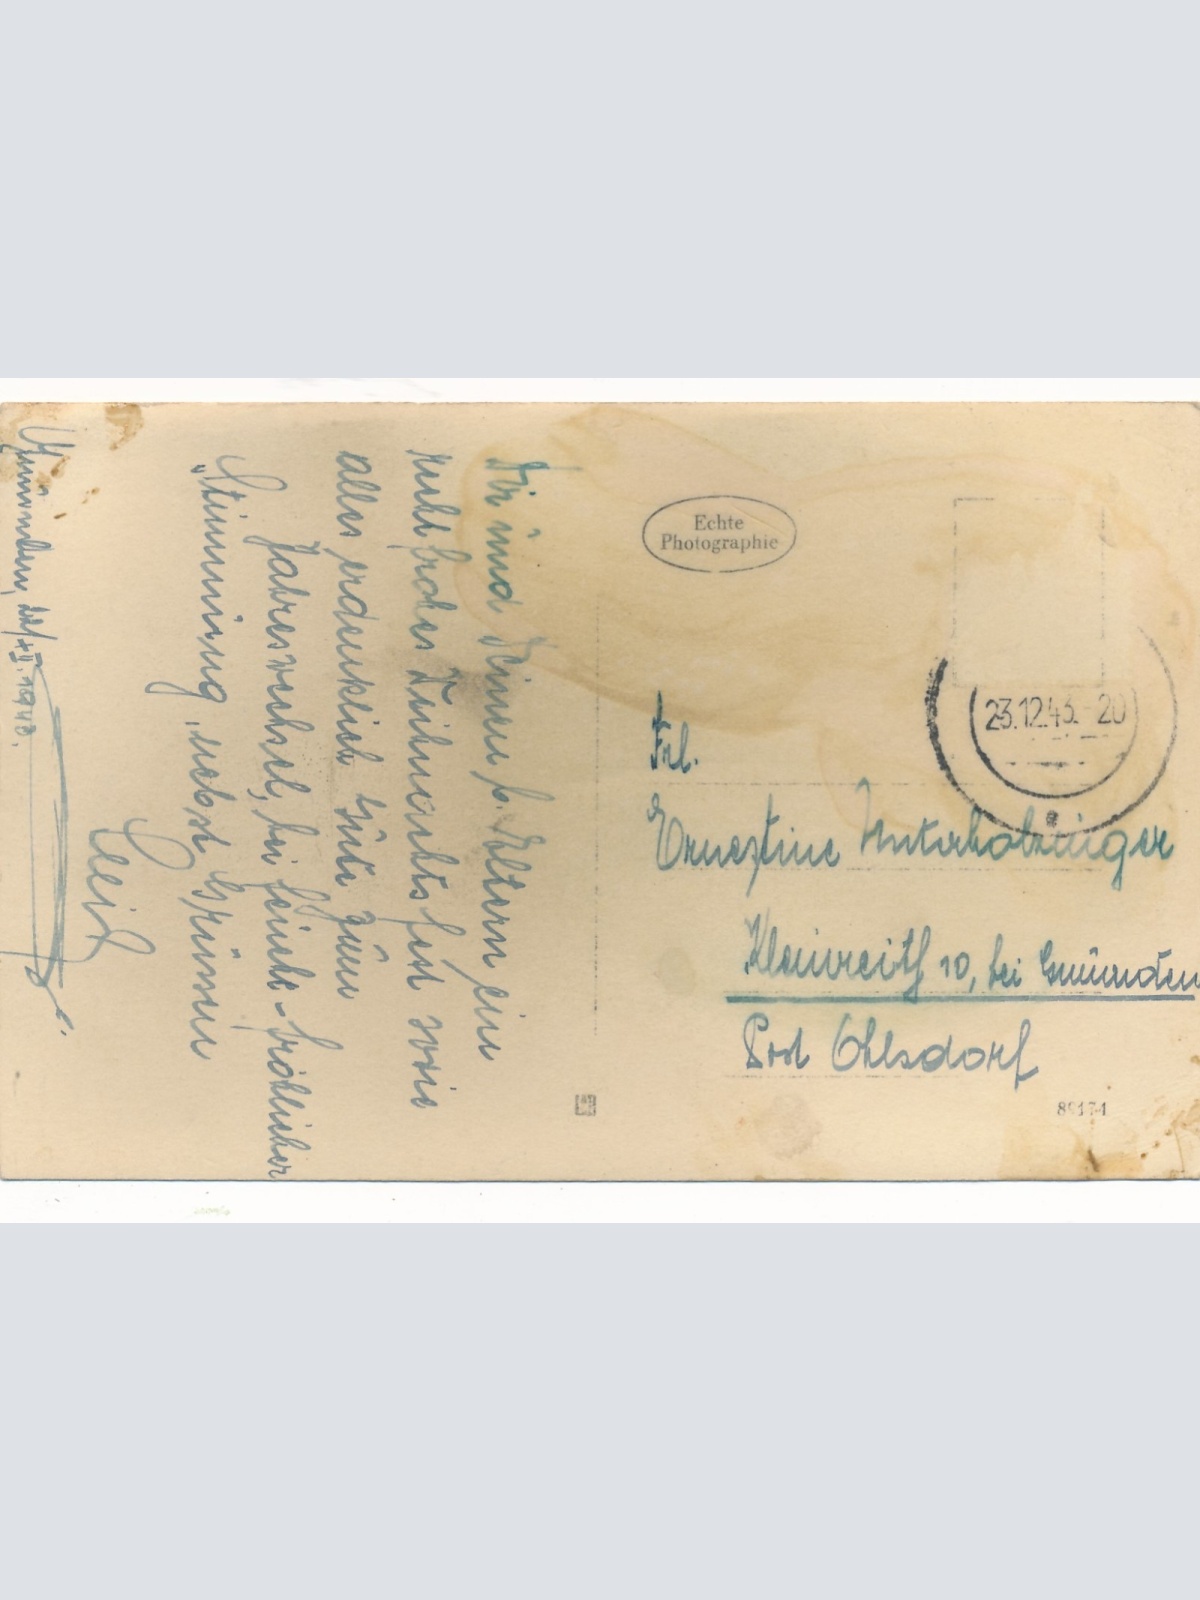 Echte
Photographie
23.12.43.-20
a
Frl.
Ernestine Unterholzinger
Kleinreith 10, bei Gmunden
Post Ohlsdorf
89134
Dir und Deinen l. Eltern ein
recht frohes Weihnachtsfest sowie
alles erdenklich Gute zum
Jahreswechsel, bei feucht-fröhlicher
"Stimmung, nebst Grüssen
Gmunden,